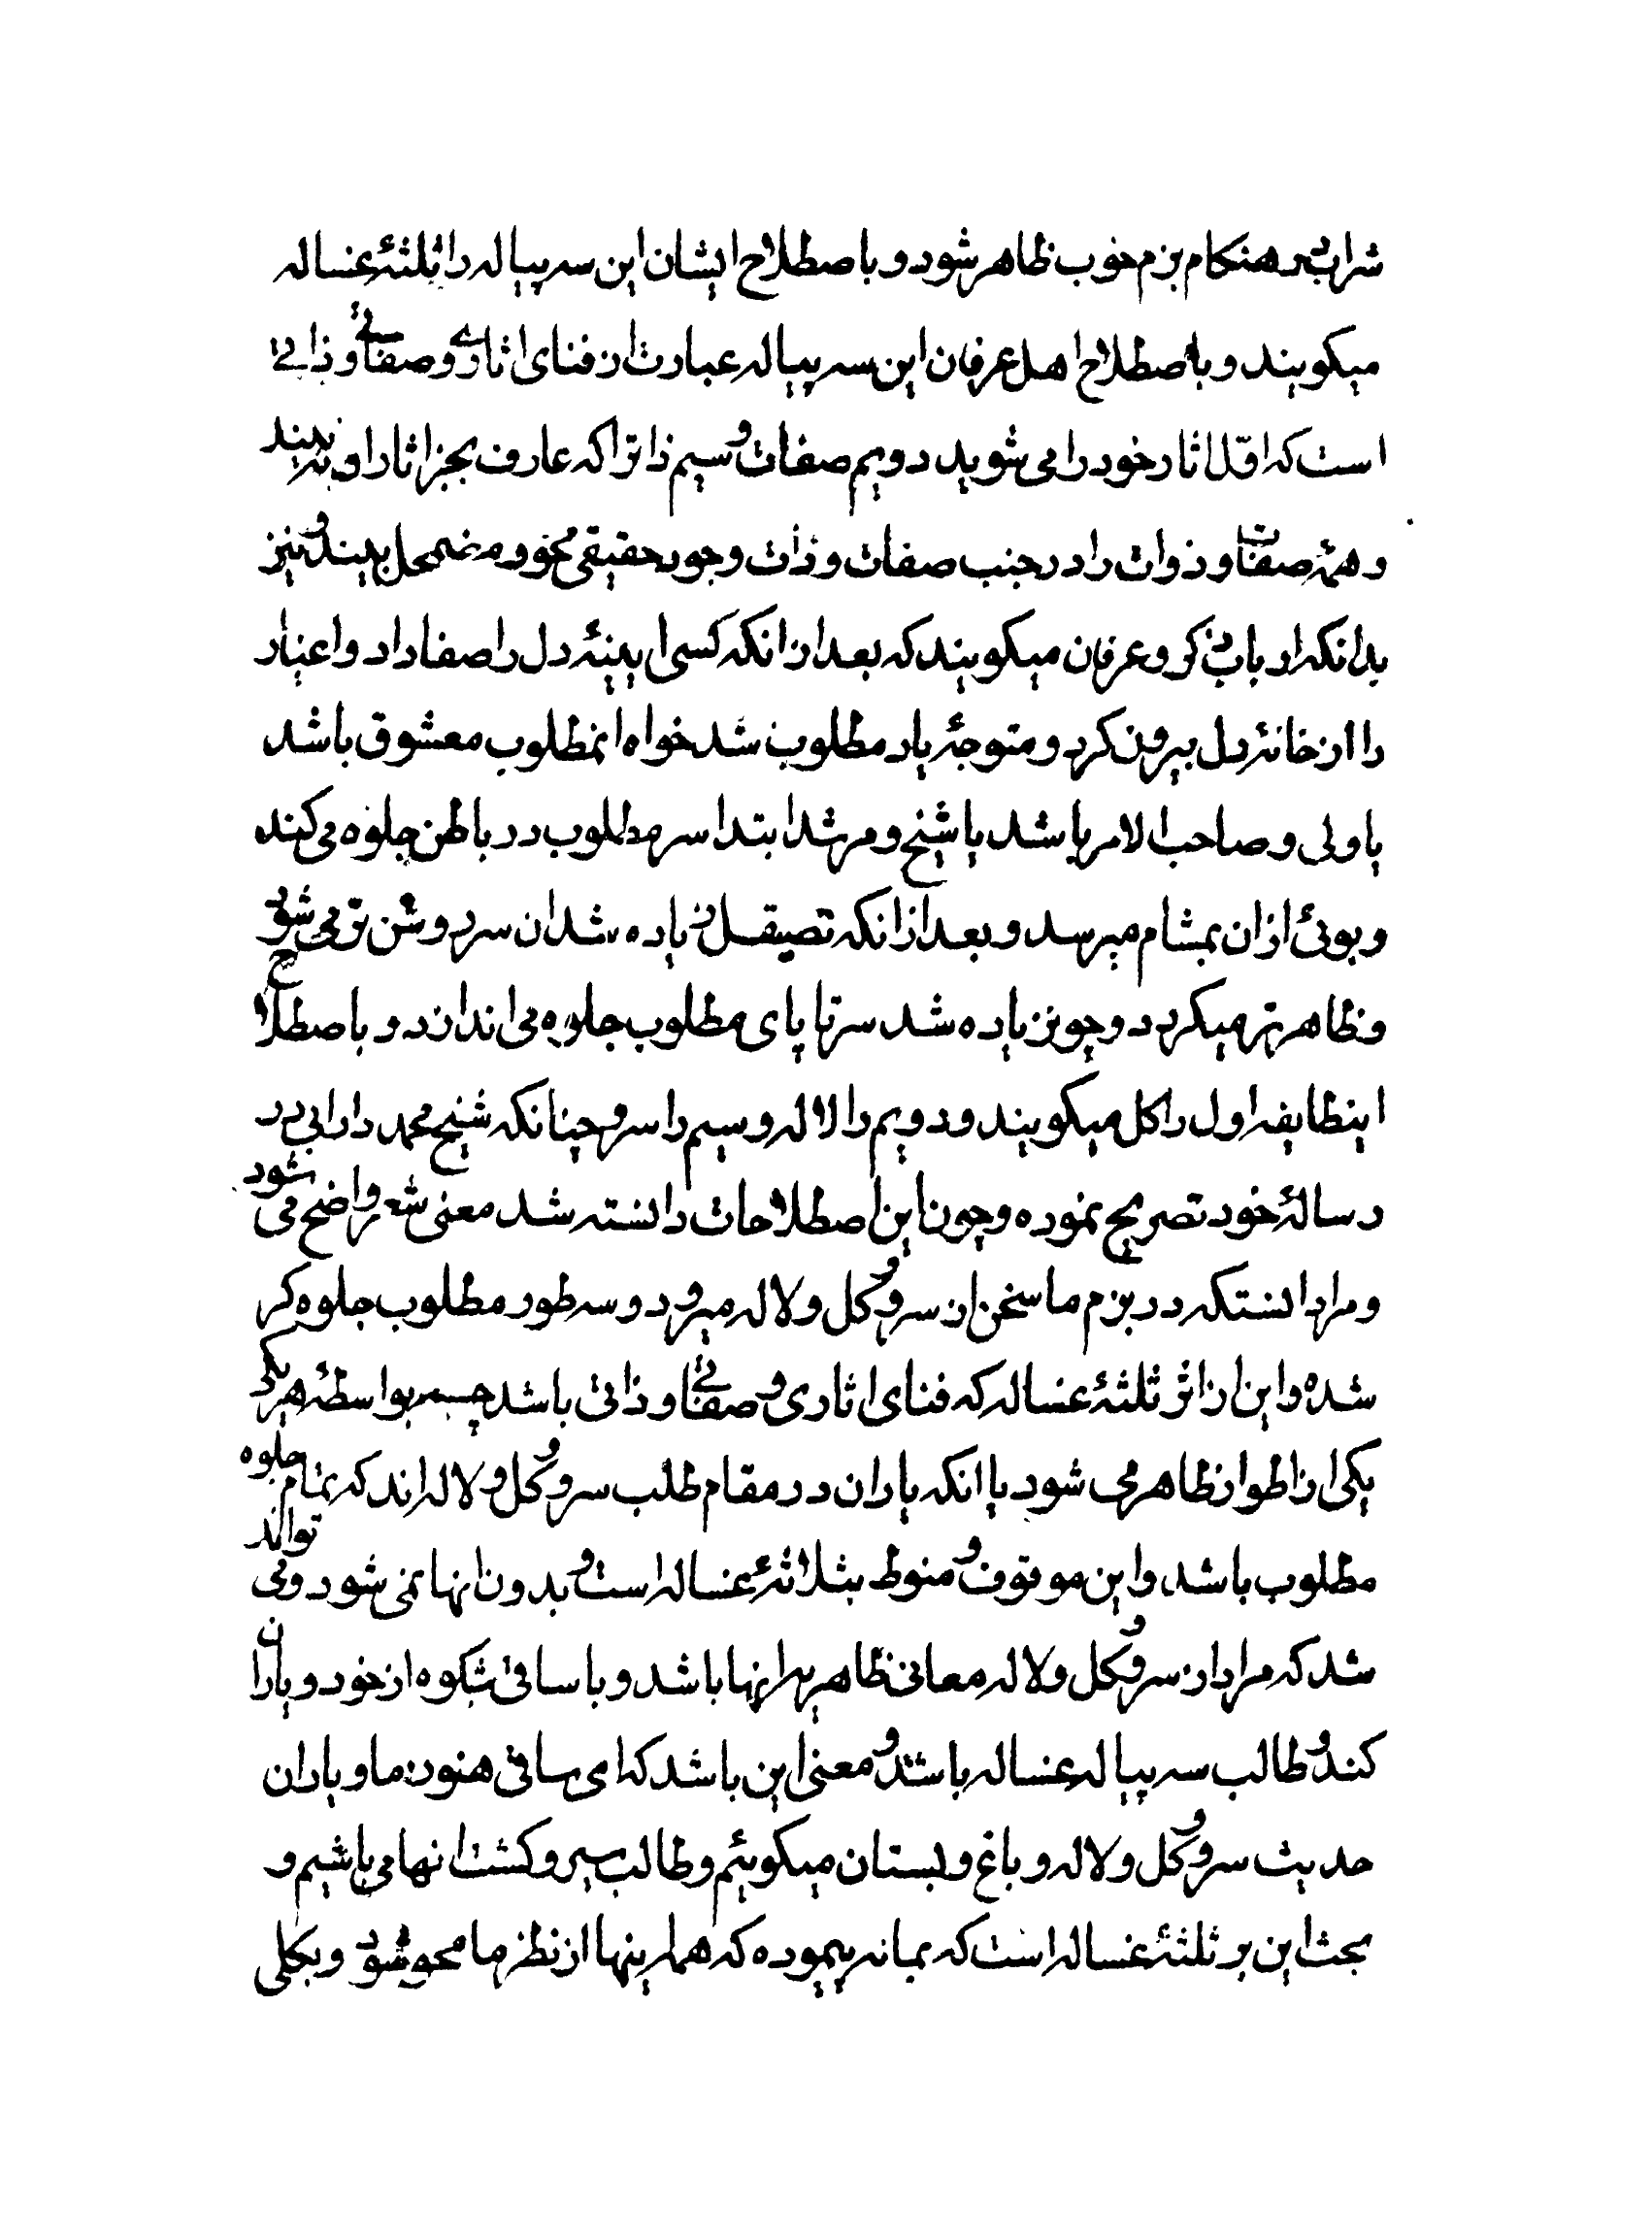 شراب در هنکام بزم خوب ظاهر شود و باصطلاح ایشان این سه پیاله را ثلثهٔ غساله
میکویند و باصطلاح اهل عرفان این سه پیاله عبارت از فنای اثاری و صفاتی و ذاتی
است که اوّل اثار خود را می شوید دویم صفات و سیم ذاتراکه عارف بجز اثار او نه بیند
و همهٔ صفات و ذوات را در جنب صفات و ذات وجود حقیقی محو و مضمحل بیند و نیز
بدانکه ارباب ذکر و عرفان میکویند که بعد از انکه کسی ایینهٔ دل را صفا داد و اغیار
را از خانهٔ دل بیرون کرد و متوجهٔ یار مطلوب شد خواه انمطلوب معشوق باشد
یا ولی و صاحب الامر یا شد یا شیخ و مرشد ابتدا سر مطلوب در باطن جلوه می کند
و بوئی از ان بمشام میرسد و بعد از انکه تصیقل زیاده شد ان سر روشن تر می شود
و ظاهر تر میکردد و چون زیاده شد سرتا پای مطلوب جلوه می اندازد و باصطلاح
اینطایفه اول را کل میکویند و دویم را لاله و سیم را سرو چنانکه شیخ محمد دارابی در
رسالهٔ خود تصریح نموده و چون این اصطلاحات دانسته شد معنی شعر واضح می شود
و مراد انستکه در بزم ما سخن از سرو و کل و لاله میرود و سه طور مطلوب جلوه کر
شده و این از اثر ثلثهٔ غساله که فنای اثاری و صفاتی و ذاتی باشد چسه بواسطهٔ هر یکی
یکی از اطوار ظاهر می شود یا انکه یاران در مقام طلب سرو و کل و لاله اند که تمام جلوه
مطلوب باشد و این موقوف و منوط بثلاثهٔ غساله است و بدون انها نمی شود و می تواند
شد که مراد از سرو و کل و لاله معانی ظاهریه انها باشد و با ساقی شکوه از خود و یاران
کند و طالب سه پیاله غساله باشد و معنی این باشد که ای ساقی هنوز ما و یاران
حدیث سرو و کل و لاله و باغ و بستان میکوئیم و طالب سیر و کشت انها می باشیم و
بحث این بر ثلثهٔ غساله است که بمانه پیموده که همهٔ اینها از نظر ما محو شود و بکلی